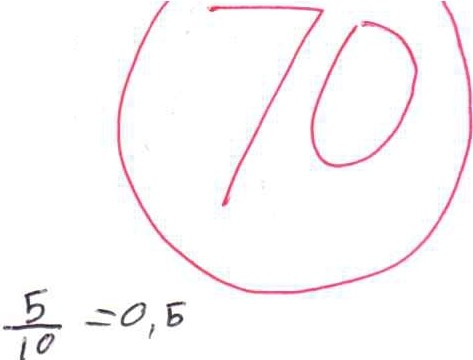 70
5/10 = 0,5